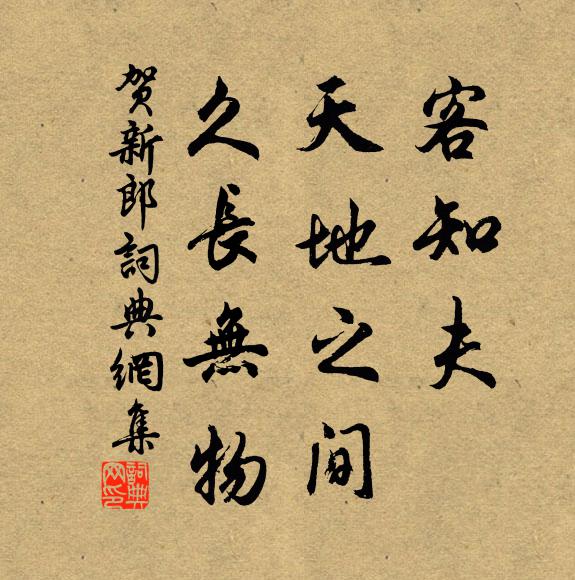 客知夫
天地之间
久長無物
贺新郎詞典網集
詞典网印